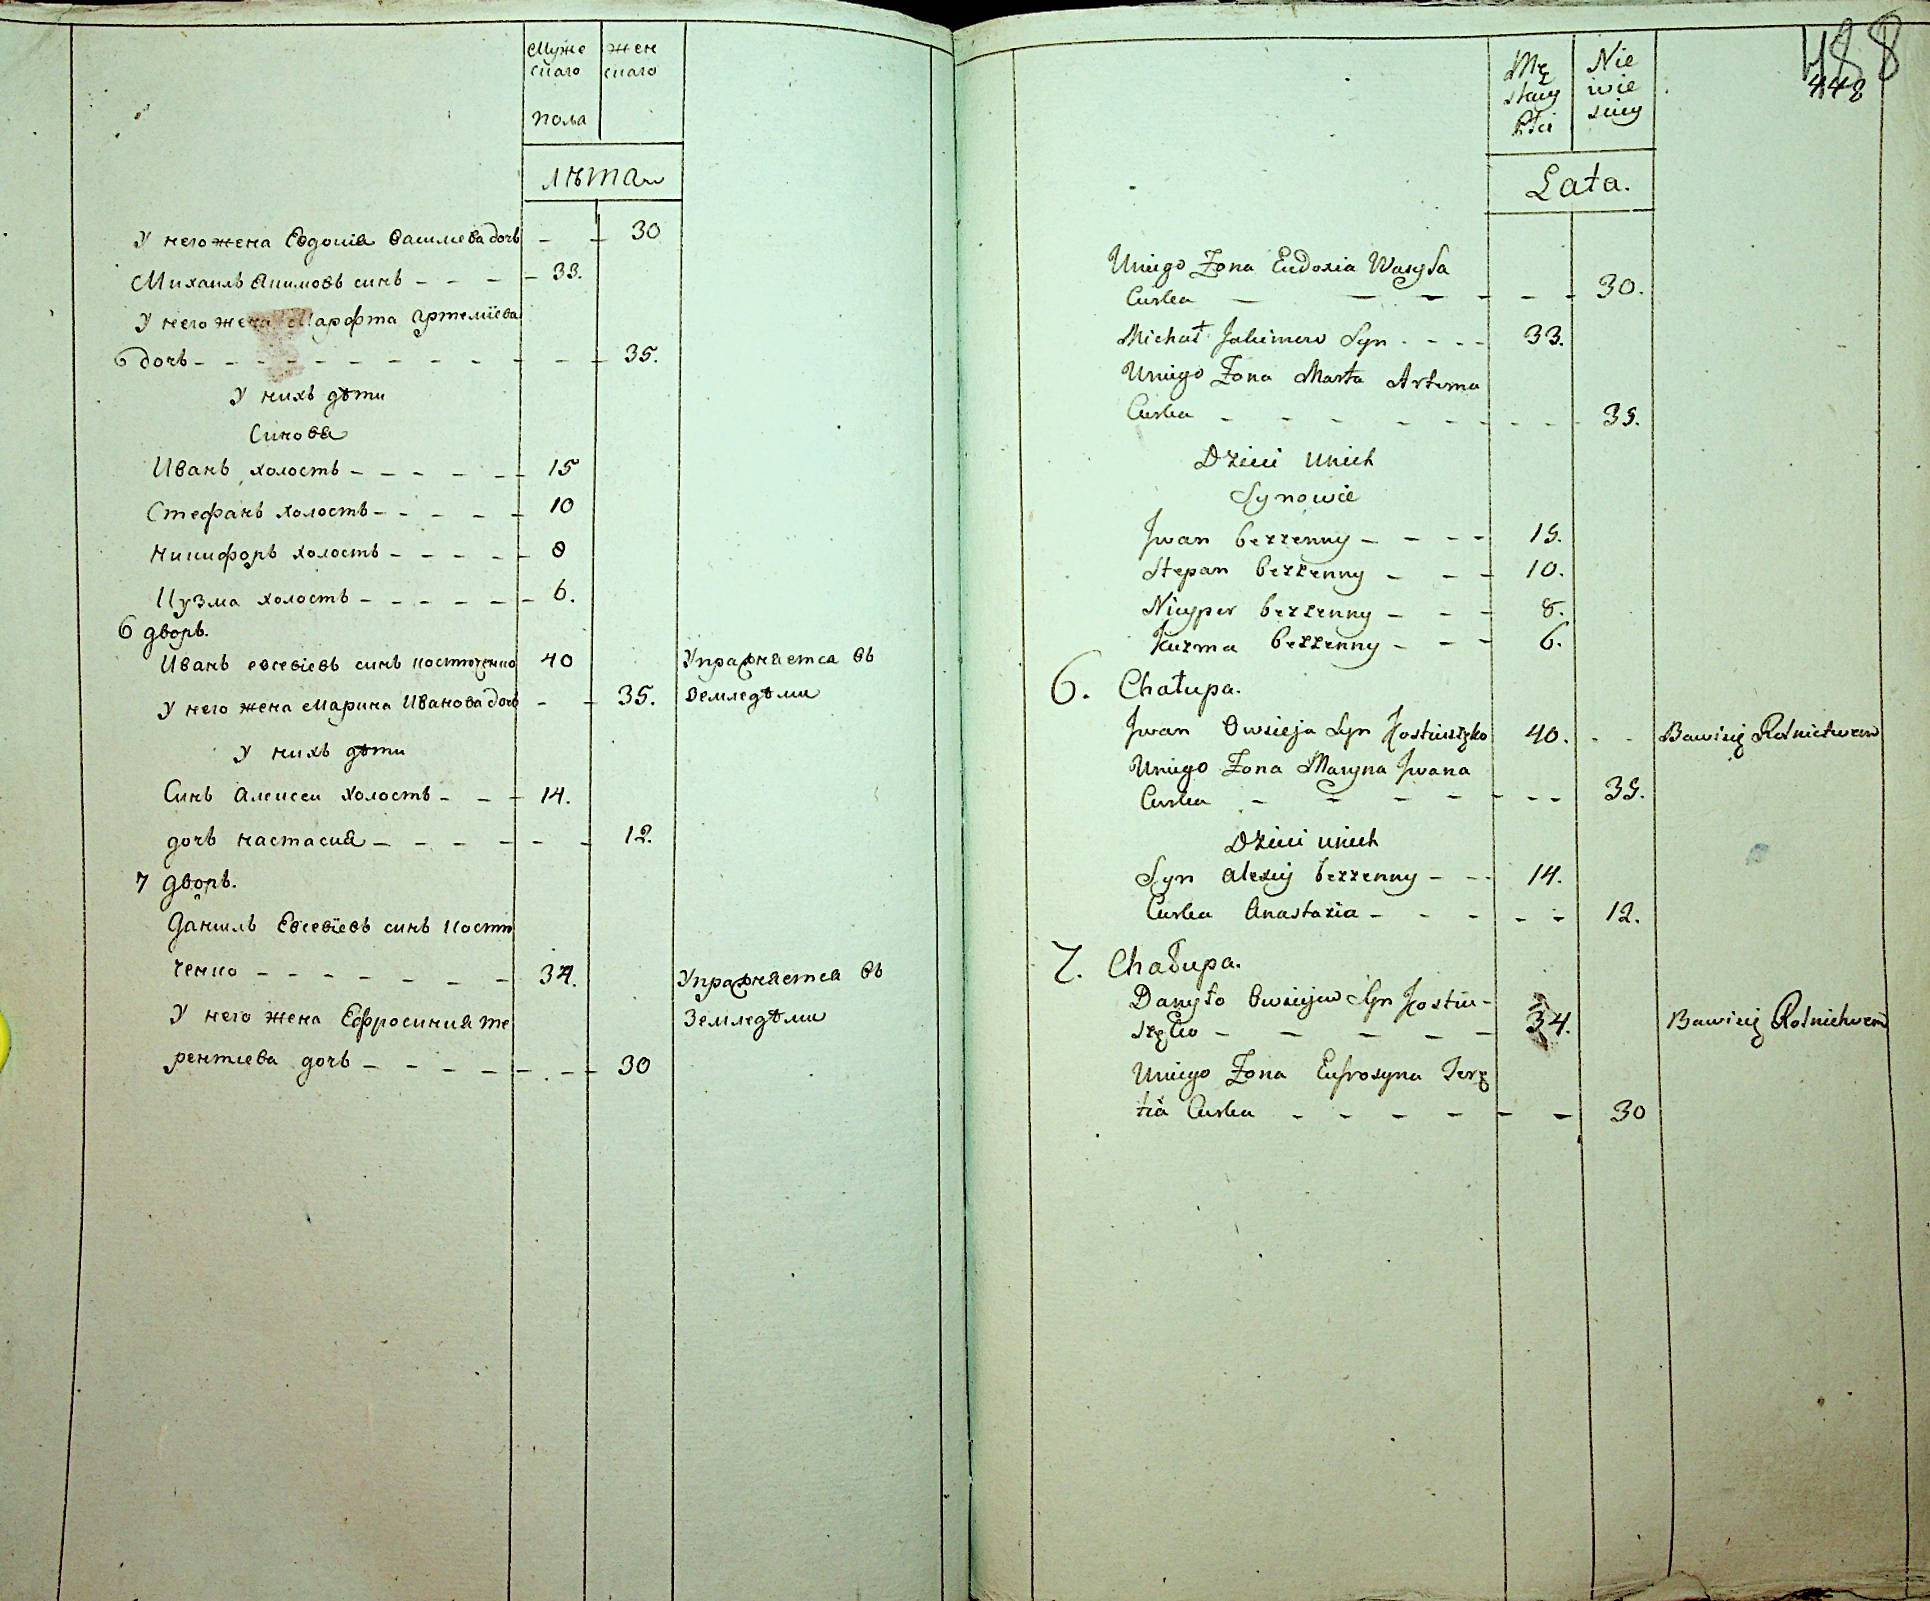 Муже
скаго
жен
скаго
пола
лѣта
У него жена Евдокія Василиева дочь - - 30
Михаилъ Якимовъ синъ - - - - 33.
У него жена Марфта Артемиева
дочь - - - - - - - - - - - - 35.
У нихъ дѣти
Синова
Иванъ холостъ - - - - - - 15
Стефанъ холостъ - - - - - 10
Никифоръ холостъ - - - - - 8
Кузма холостъ - - - - - - 6.
6 дворъ.
Иванъ евсевіевъ синъ костюченко 40 Упражняется въ
У него жена Марина Иванова дочь - - 35. Земледѣли
У нихъ дѣти
Синъ Алексеи холостъ - - - 14.
дочь настасия - - - - - - - 12.
7 дворъ.
Данилъ Евсевіевъ синъ костю
ченко - - - - - - - 34. Упражняется въ
У него жена Ефросиния Те Земледѣли
рентиева дочь - - - - - - . - - 30
488
448
Mę
skiey
Płci
Nie
wie
sciey
Lata.
Uniego Żona Eudoxia Wasyla
Curka - - - - - - 30.
Michał Jakimow Syn - - - - 33.
Uniego Żona Marta Artema
Curka - - - - - - - - - 35.
Dzieci Unich
Synowie
Jwan bezzenny - - - - 15.
Stepan bezżenny - - - 10.
Nicyper bezżenny - - - 8.
Kuzma bezżenny - - - 6.
6. Chałupa.
Jwan Owsieja Syn Kostiuszko 40. - - Bawi się Rolnictwem
Uniego Żona Maryna Jwana
Curka - - - - - - - - 35.
Dzieci unich
Syn Alexiy bezzenny - - - 14.
Curka Anastazia - - - - - 12.
7. Chałupa.
Danyło Owsiejew Syn Kostiu-
szko - - - - - 34. Bawi się Rolnictwem
Uniego Żona Eufrosyna Terę
tia Curka - - - - - - 30